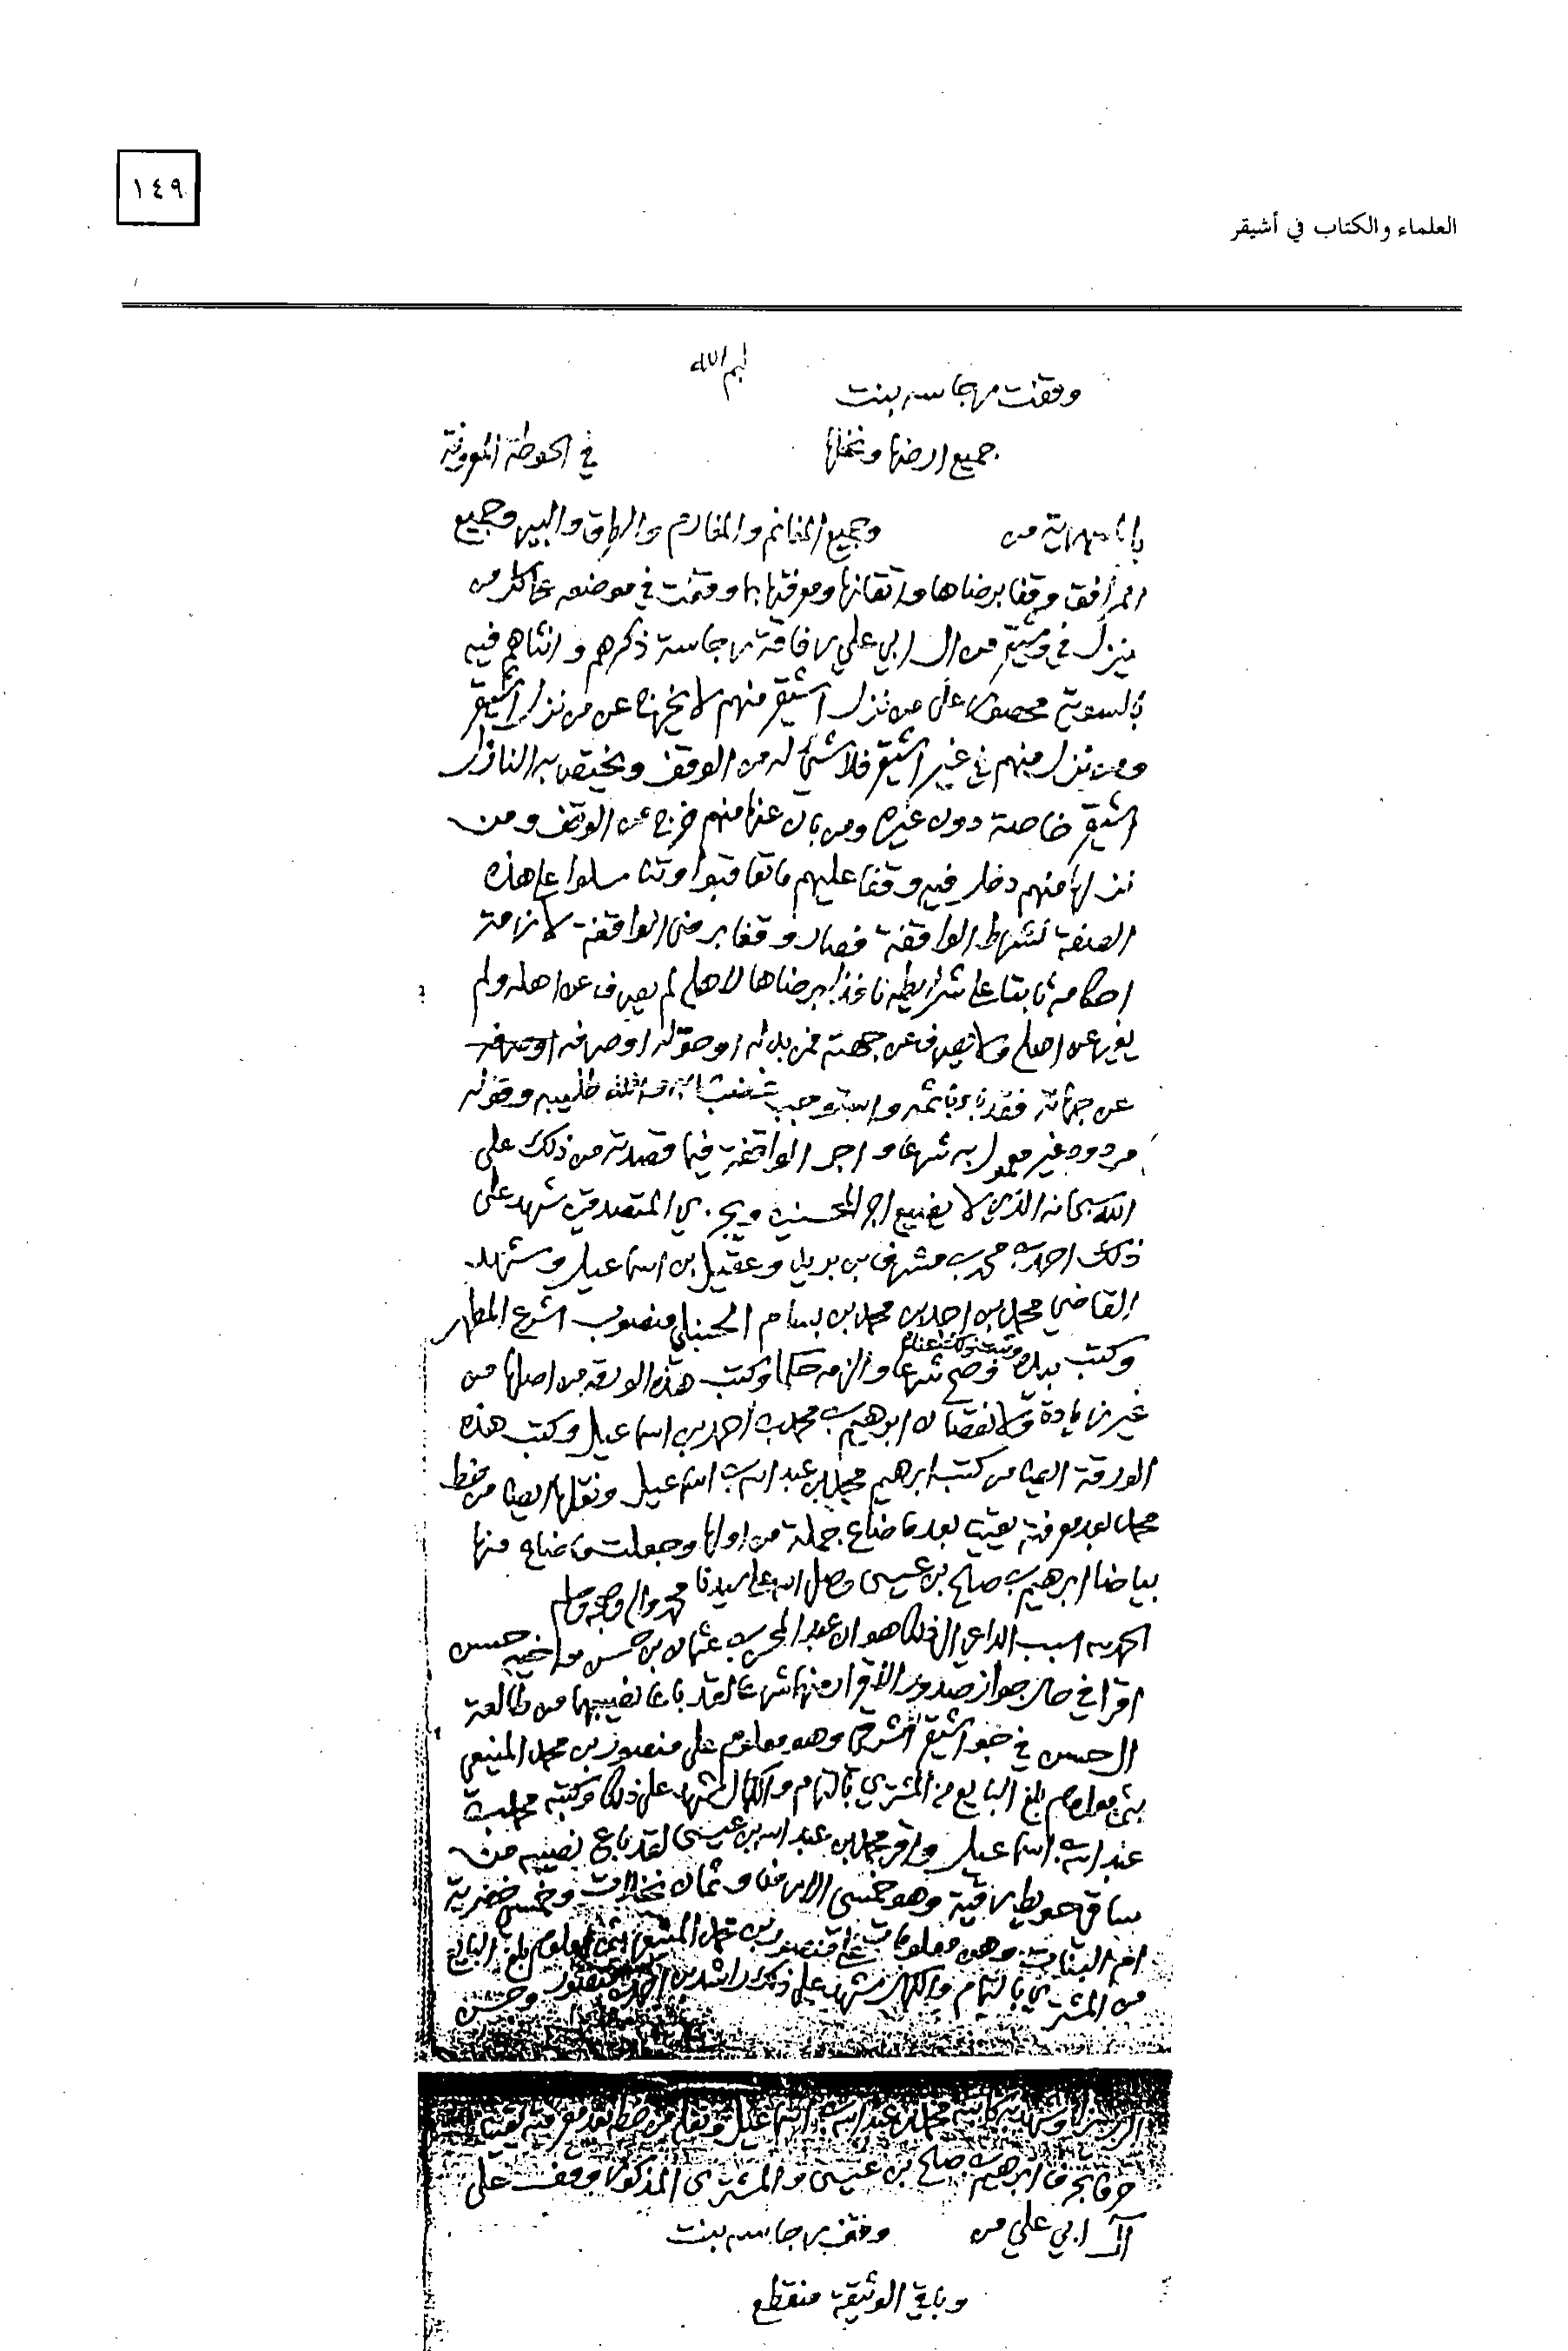 ١٤٩
العلماء والكتاب في أشيقر
بسم الله
وقفت مرجاسه بنت
جميع ارضها ونخلها في الحوطة المعروفة
من وجميع المغانم والمغارم والطرق والبير وجميع
المرافق وقفا برضاها واتقانها ومعرفتها بما وقفت في موضعه على كل من
ينزل في وشيقر من ال ابي علي رفاقة مرجاسة ذكرهم وانثاهم فيه
بالسوية محصورا على من نزل اشيقر منهم لا يخرج عن من نزل اشيقر
ومن نزل منهم في غير اشيقر فلا شيئ له من الوقف ويختص به النازل
اشيقر خاصة دون غيره ومن بان عنها منهم خرج عن الوقف ومن
نزلها منهم دخل فيه وقفا عليهم ما تعاقبوا وتناسلوا على هذه
الصفة لشرط الواقفة فصار وقفا برضى الواقفة لازمة
احكامه ثابتا على شرايطه نافذا برضاها لاهله لم يصرف عن اهله ولم
يغير عن اصله ولا يصرف عن جهته فمن بدله او حوله او صرفه
عن جهاته فقد باء باثمه واستوجب غضب الله وقوله
مردود غير معمول به شرعا واجر الواقفة فيما قصدته من ذلك على
الله سبحانه الذي لا يضيع اجر المحسنين ويجزي المتصدقين شهد على
ذلك احمد بن محمد بن مشرف بن بريد وعقيل بن اسماعيل وشهد
القاضي محمد بن احمد بن محمد بن بسام الحنبلي منصوب الشرع المطهر
وكتب بيده وثبت ذلك عندي فصح شرعا والزمه حكما وكتب هذه الورقة من اصلها من
غير زيادة ولا نقصان ابرهيم بن محمد بن احمد بن اسماعيل وكتب هذه
الورقة ايضا من كتب ابرهيم محمد بن عبد الله بن اسماعيل ونقلها ايضا من خط
محمد بعد معرفته يقينا بعد ما ضاع جملة من اولها وجعلت ما ضاع منها
بياضا ابرهيم بن صالح بن عيسى وصلى الله على سيدنا محمد واله وصحبه وسلم
الحمد لله السبب الداعي الى ذلك هو ان عبد المحسن بن عثمان بن حسن واخيه حسن
اقرا في حال جواز صدور الاقرار منهما شرعا لقد باعا نصيبهما من طالعة
ال حسن في جو اشيقر الشرقي وهو معلوم على منصور بن محمد المنيعي
بثمن معلوم بلغ البايع من المشتري بالتمام والكمال شهد على ذلك وكتبه محمد بن
عبد الله بن اسماعيل واقر محمد بن عبد الله بن عيسى لقد باع نصيبه من
ساقي حويط رقية وهو خمسي الارض وثمان نخلات وخمس خضرية
ام البنات وهن معلومات على منصور بن محمد المنيعي بثمن معلوم بلغ البايع
من المشتري بالتمام والكمال شهد على ذلك راشد بن وحسن
وشهد به كاتبه محمد بن عبد الله بن اسماعيل ونقله من خطه بعد معرفته يقينا
حرفا بحرف ابرهيم بن صالح بن عيسى والمشترى المذكور وقف على
ال ابي علي من وقف مرجاسه بنت
وباقي الوثيقة منقطع